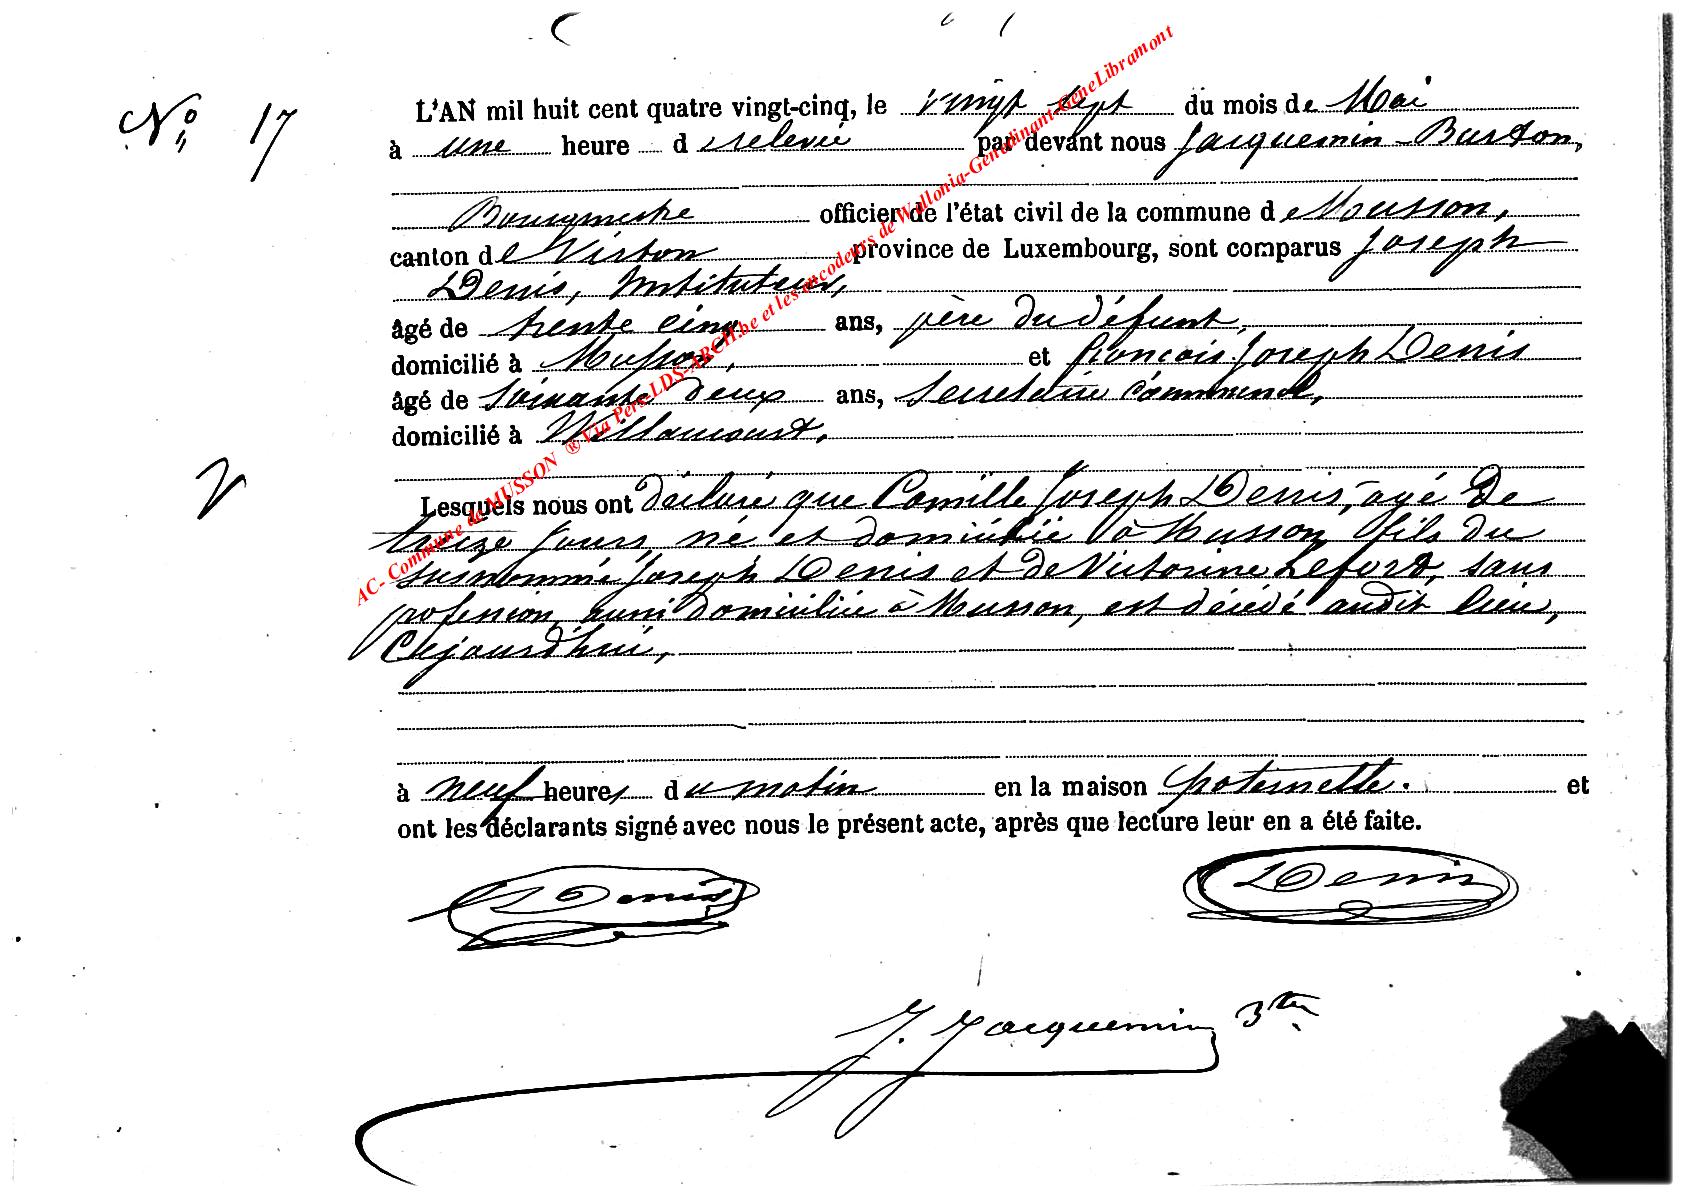 No 17
L'AN mil huit cent quatre vingt-cinq, le vingt sept du mois de Mai
à une heure de relevée par devant nous Jacquemin-Burton,
Bourgmestre officier de l'état civil de la commune de Musson,
canton de Virton province de Luxembourg, sont comparus Joseph
Denis, Instituteur,
âgé de trente cinq ans, père du défunt,
domicilié à Musson, et françois Joseph Denis
âgé de soixante deux ans, secretaire communal,
domicilié à Willancourt.
V
Lesquels nous ont déclaré que Camille Joseph Denis, agé de
treize jours, né et domicilié à Musson, fils du
susnommé Joseph Denis et de Victorine Lefort, sans
profession, aussi domiciliée à Musson, est décédé audit lieu,
Cejourd'hui,
à neuf heures du matin en la maison paternelle. et
ont les déclarants signé avec nous le présent acte, après que lecture leur en a été faite.
Denis Denis
J. Jacquemin Btn
AC- Commune de MUSSON ® Via Pers-LDS-ARCH.be et les encodeurs de Wallonia-Genedinant-GeneLibramont